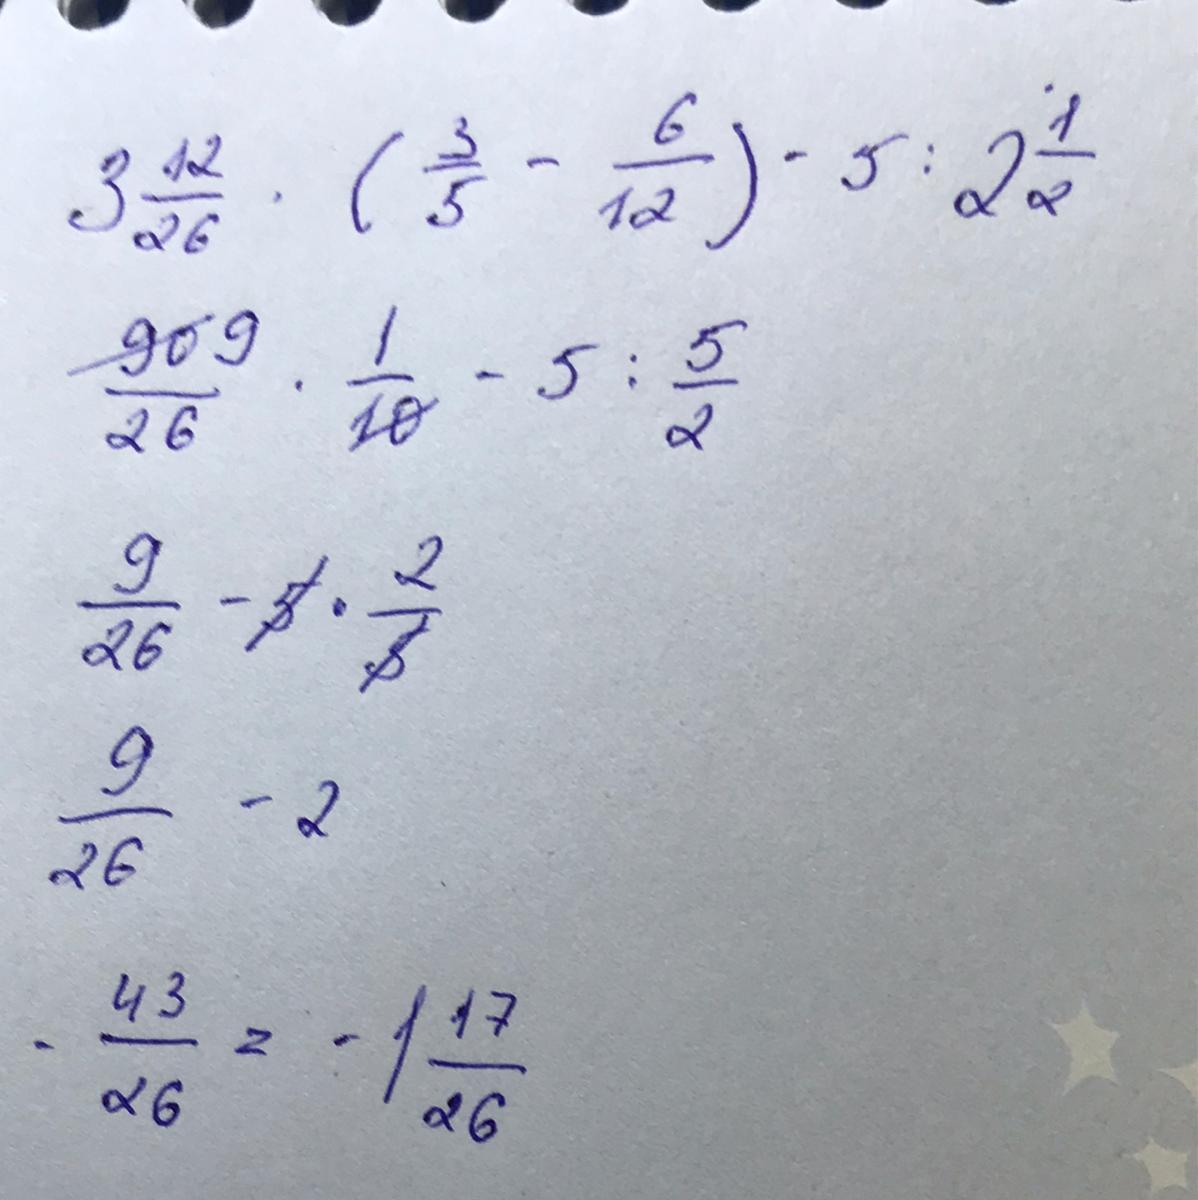 3 12/26 · (3/5 - 6/12) - 5 : 2 1/2
90 9/26 · 1/10 - 5 : 5/2
9/26 - 5 · 2/5
9/26 - 2
- 43/26 = - 1 17/26